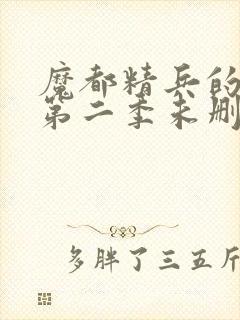 魔都精兵的
第二季未删
多胖了三五斤